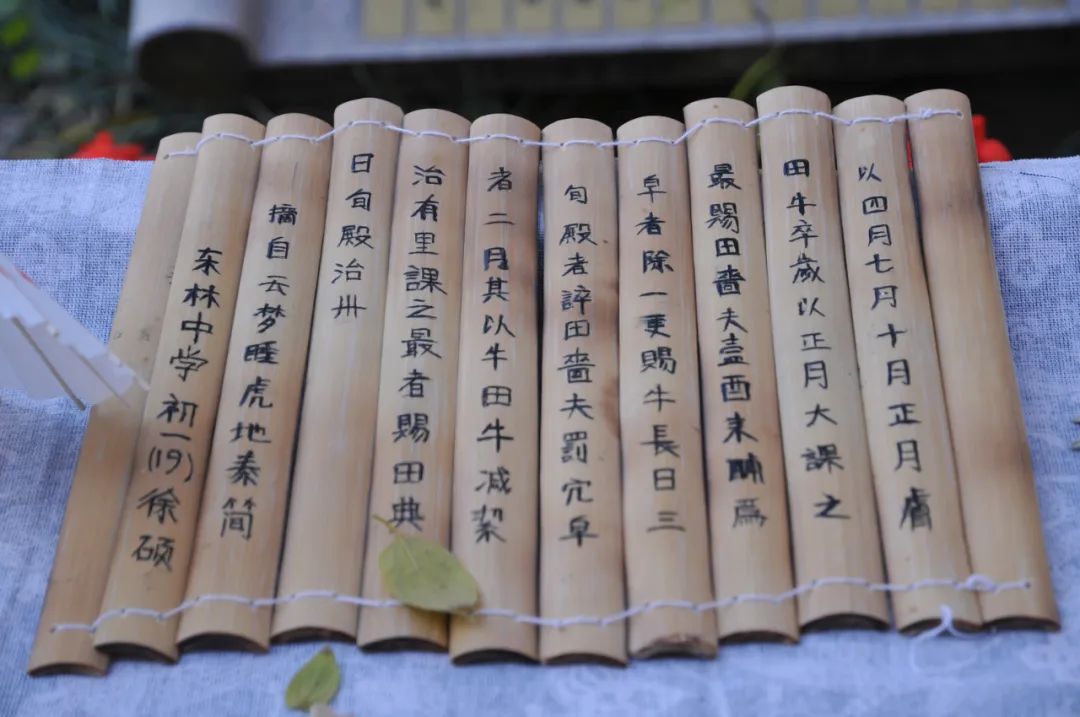 以四月七月十月正月膚
田牛卒歲以正月大課之
最賜田嗇夫壺酉束脯爲
皁者除一更賜牛長日三
旬殿者誶田嗇夫罰冗皁
者二月其以牛田牛减絜
治有里課之最者賜田典
日旬殿治卅
摘自云梦睡虎地秦简
东林中学初一(19)徐硕